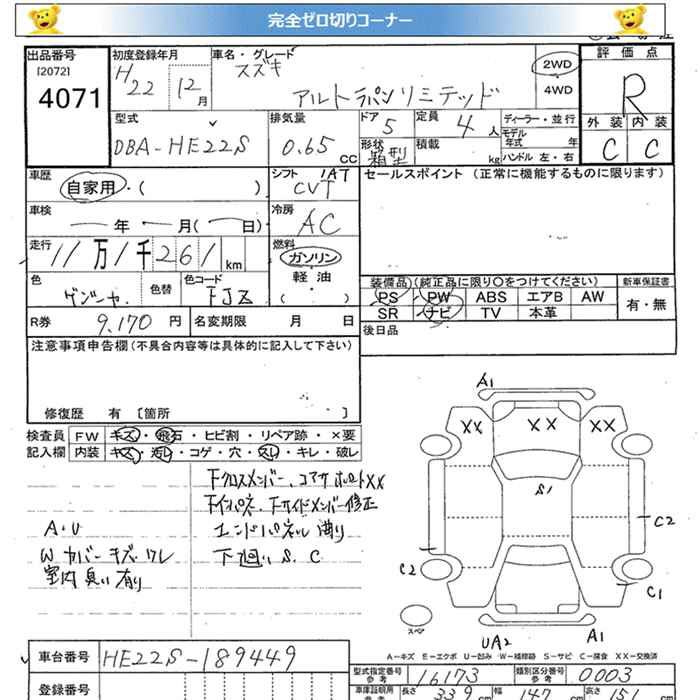 完全ゼロ切りコーナー
出品番号
[2072]
4071
初度登録年月
H22 12月
車名・グレード
スズキ
アルトラパンリミテッド
2WD
4WD
評価点
R
外装 内装
C C
型式
DBA-HE22S
排気量
0.65 CC
ドア 5
定員 4人
形状 箱型
積載 kg
ディーラー・並行
モデル年式 年
ハンドル 左・右
車歴
自家用・( )
シフト 1AT
CVT
セールスポイント (正常に機能するものに限ります)
車検
年 月( 日)
冷房
AC
走行
11万1千261km
燃料
ガソリン
軽油
( )
色
色替
色コード
装備品)(純正品に限り○をつけてください)
新車保証書
PS PW ABS エアB AW
SR ナビ TV 本革
有・無
R券
9,170円
名変期限 月 日
後日品
注意事項申告欄(不具合内容等は具体的に記入して下さい)
修復歴 有 [箇所 ]
検査員
記入欄
FW キズ・飛石・ヒビ割・リペア跡・×要
内装 キズ・汚レ・コゲ・穴・スレ・キレ・破レ
下クロスメンバー、コアサポートXX
下インパネ、下サイドメンバー修正
A・U
エンドパネル 曲り
W カバー キズ、ワレ
下廻い S、C
室内 臭い 有り
A1
XX XX XX
S1
C2
C2
C1
スペア
UA2
A1
A-キズ E-エクボ U-凹み W-補修跡 S-サビ C-腐食 XX-交換済
車台番号
HE22S-189449
登録番号
型式指定番号
参考
16173
類別区分番号
参考
0003
車庫証明用
長さ 339 cm
147 cm